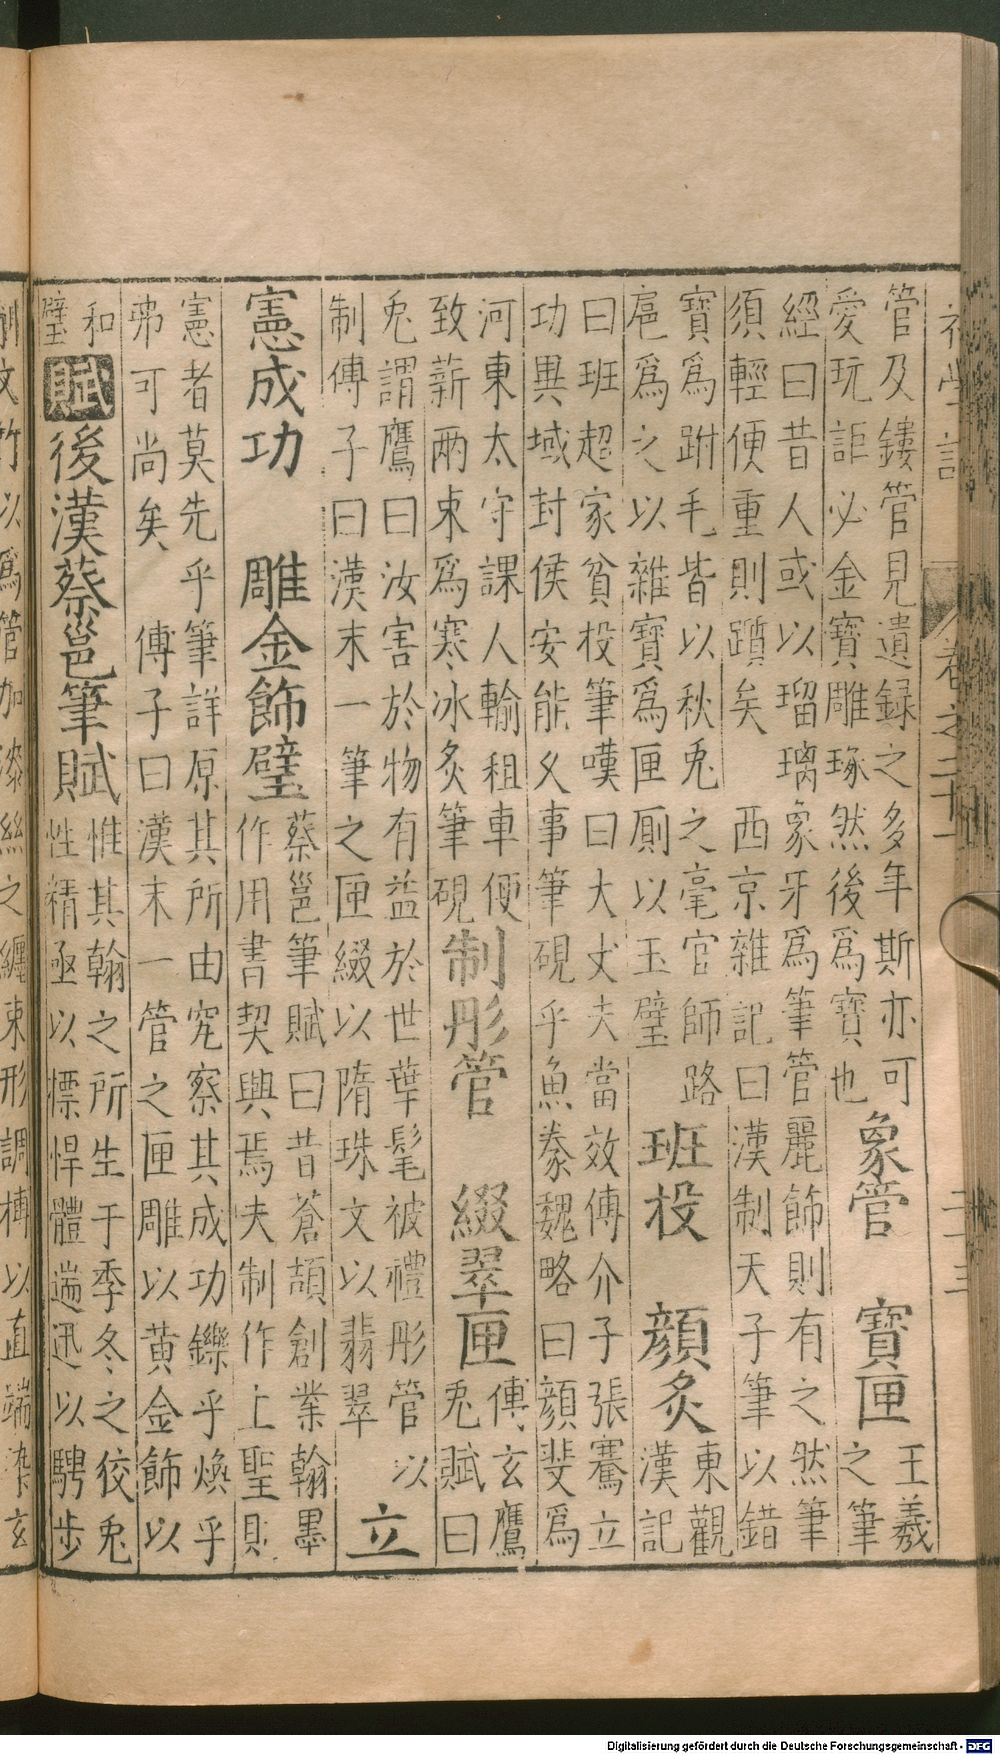 初學記 卷之二十一 二十三
管及鏤管見遺録之多年斯亦可
愛玩詎必金寶雕琢然後爲寶也
象管 寶匣
王羲
之筆
經曰昔人或以瑠璃象牙爲筆管麗飾則有之然筆
須輕便重則躓矣 西京雜記曰漢制天子筆以錯
寶爲跗毛皆以秋兎之毫官師路
扈爲之以雜寶爲匣厠以玉璧
班投 顔炙
東觀
漢記
曰班超家貧投筆嘆曰大丈夫當效傅介子張騫立
功異域封侯安能久事筆硯乎魚豢魏略曰顔斐爲
河東太守課人輸租車便
致薪兩束爲寒冰炙筆硯
制彤管 綴翠匣
傅玄鷹
兎賦曰
兎謂鷹曰汝害於物有益於世華髦被禮彤管以
制傅子曰漢末一筆之匣綴以隋珠文以翡翠
立
憲成功 雕金飾璧
蔡邕筆賦曰昔蒼頡創業翰墨
作用書契興焉夫制作上聖則
憲者莫先乎筆詳原其所由究察其成功鑠乎煥乎
弗可尚矣 傅子曰漢末一管之匣雕以黄金飾以
和
璧
賦 後漢蔡邕筆賦
惟其翰之所生于季冬之佼兎
性精亟以慓悍體遄迅以騁步
削文竹以爲管加漆絲之纏束形調摶以直端染玄
Digitalisierung gefördert durch die Deutsche Forschungsgemeinschaft - DFG